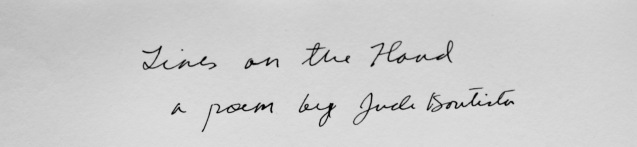 Lines on the Hand
a poem by Jude Bautista